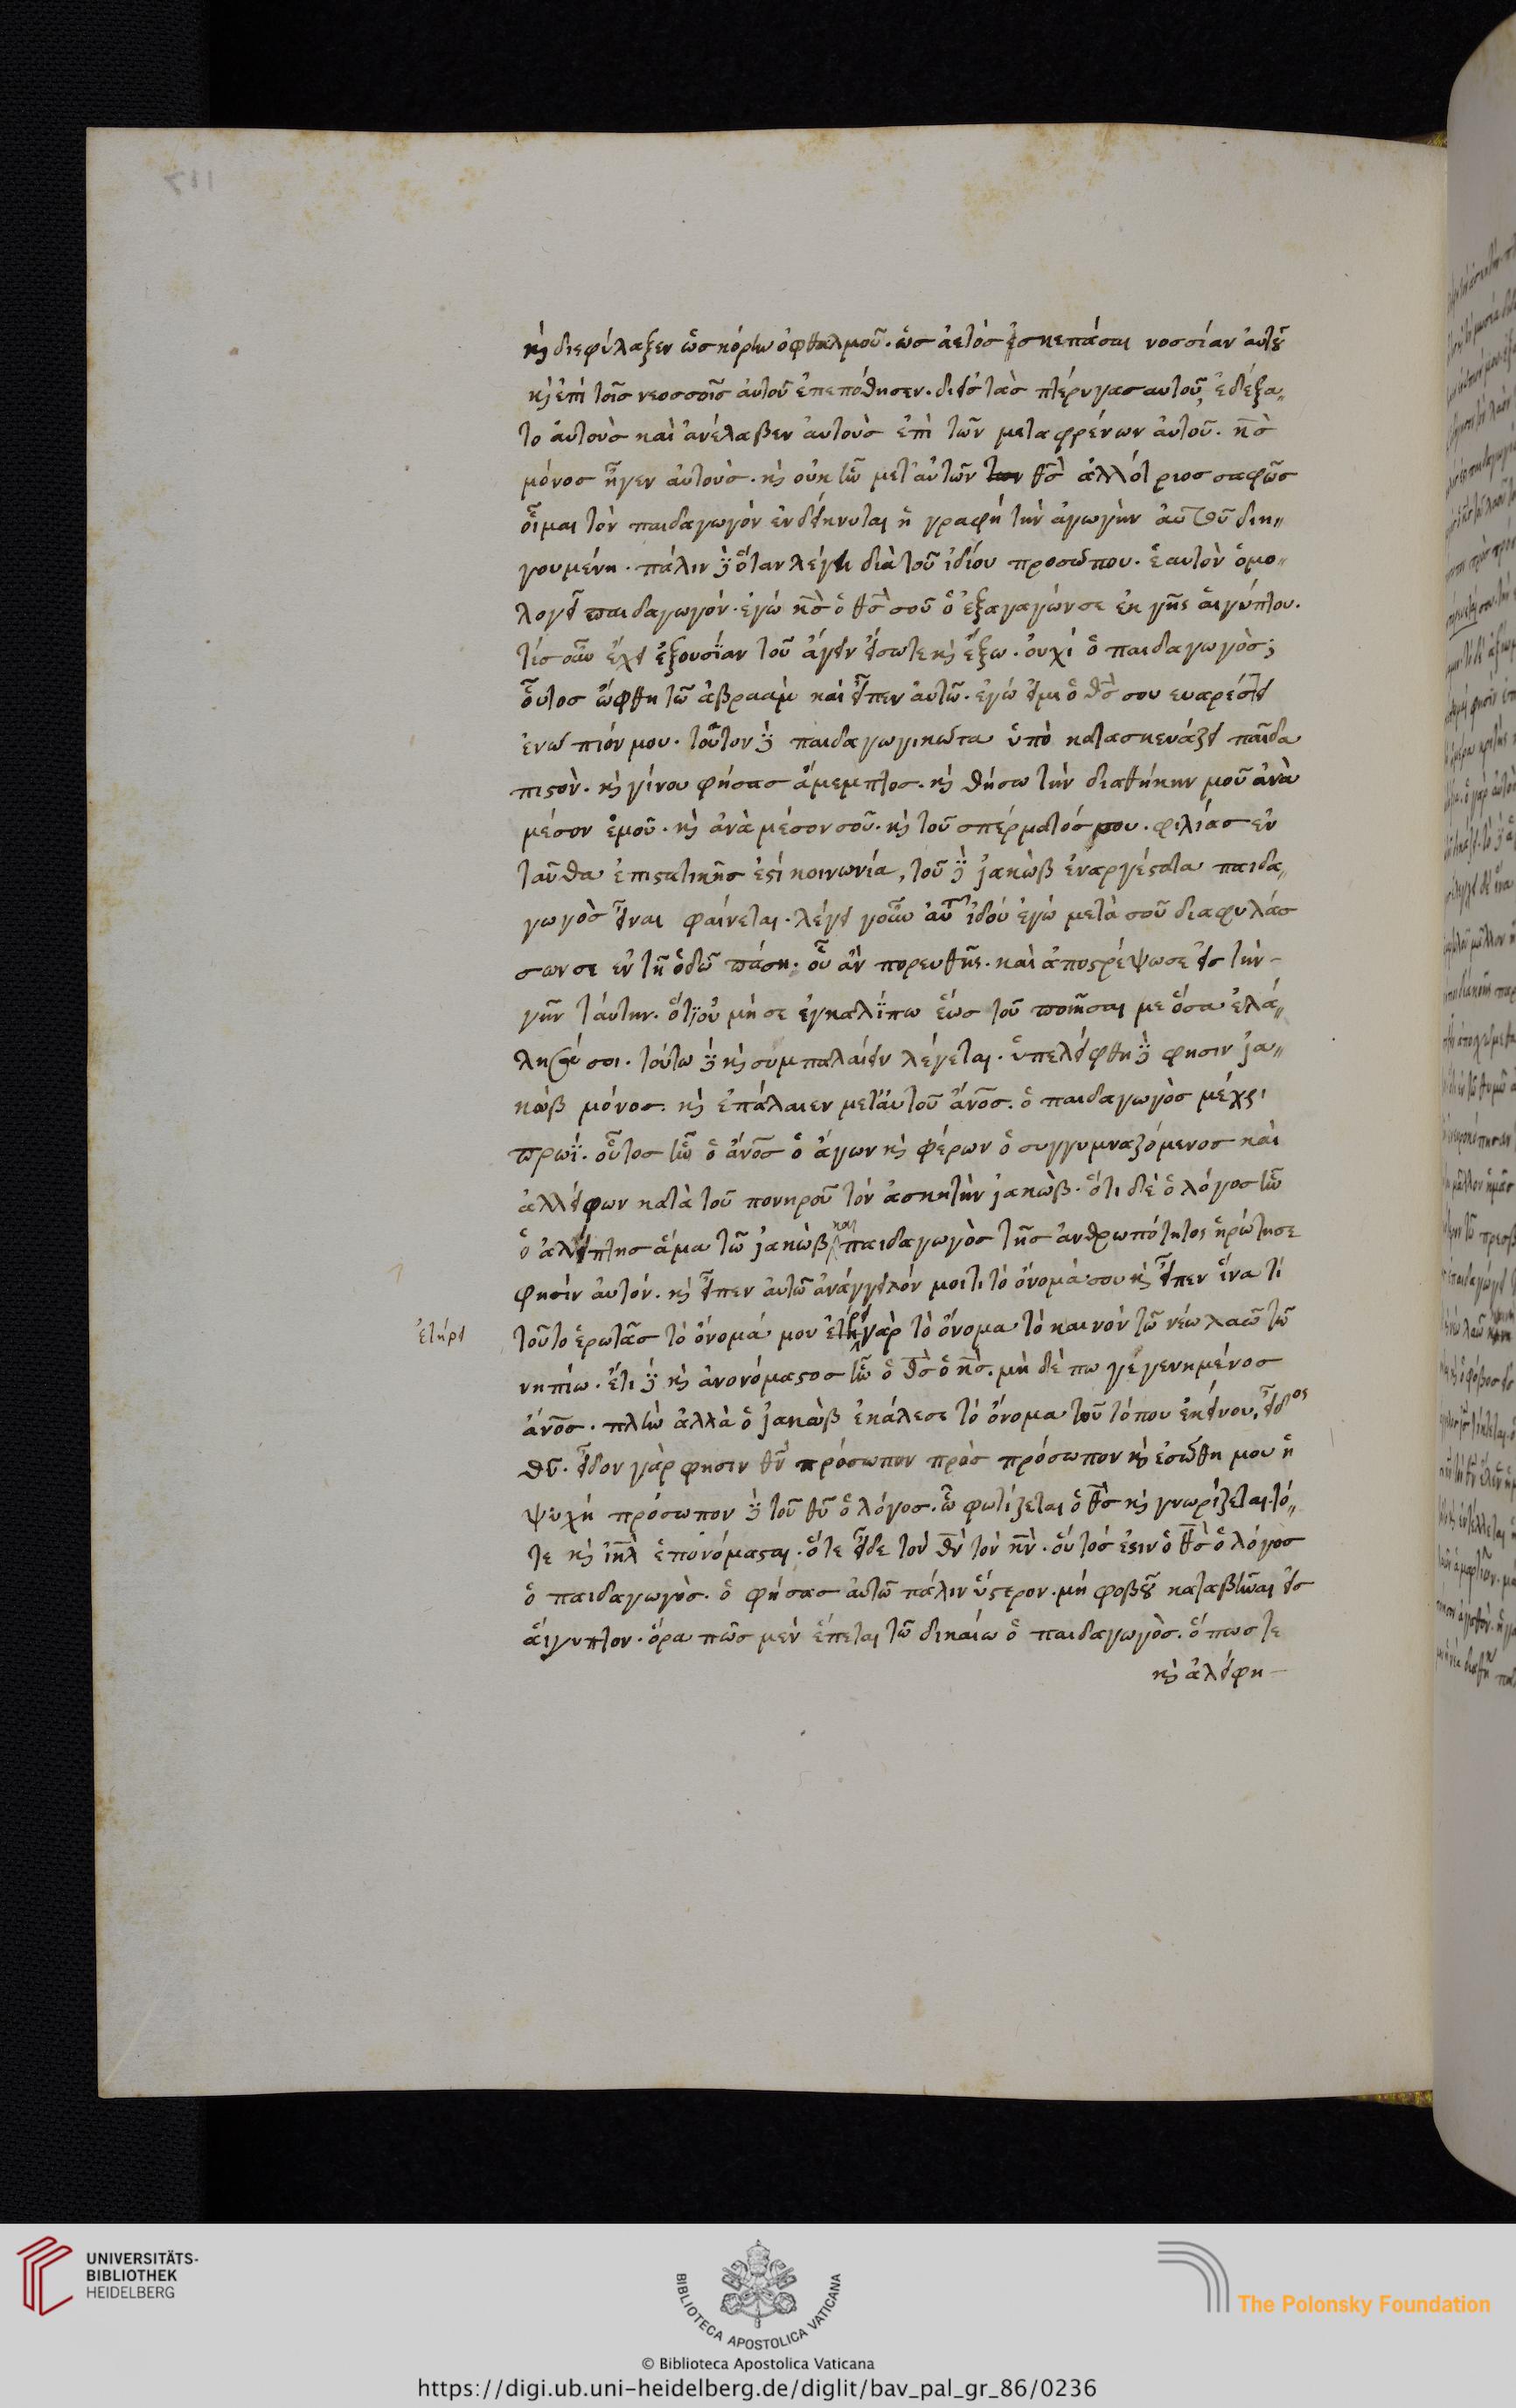 117
κ̀ διεφύλαξεν ὡσ κόρην ὀφθαλμοῦ. ὡσ ἀετόσ ἐσκεπάσαι νοσσίαν αὐτοῦ
κ̀ ἐπί τοῖσ νεοσσοῖσ ἀυτοῦ ἐπεπόθησεν. διεὶσ τὰσ πτέρυγασ αυτοῦ, ἐδέξα„
το ἀυτοὺσ καὶ ἀνέλαβεν ἀυτοὺσ ἐπὶ τῶν μεταφρένων ἀυτοῦ. κ̅σ̅
μόνοσ ἦγεν ἀυτουσ. κ̀ οὐκ ἦν μετ' αὐτῶν θ̅σ̅ ἀλλότριοσ σαφῶσ
οἶμαι τὸν παιδαγωγὸν ἐνδείκνυται ἡ γραφή τὴν ἀγωγὴν ἀυτοῦ διη„
γουμένη. πάλιν δ̀ ὅταν λέγη διὰ τοῦ ἰδίου προσώπου. ἑαυτὸν ὁμο„
λογεῖ παιδαγωγόν. ἐγώ κ̅σ̅ ὁ θ̅σ̅ σοῦ ὁ ἐξαγαγών σε ἐκ γῆς ἀιγύπτου.
τίσ οὖν ἔχει ἐξουσίαν τοῦ ἄγειν εἴσω τε κ̀ ἔξω. ὀυχί ὁ παιδαγωγὸσ;
οὗτοσ ὤφθη τῶ ἀβραὰμ καὶ εἶπεν ἀυτῶ. ἐγώ εἰμι ὁ θ̅σ̅ σου ευαρέστει
ἐνώπιόν μου. τοῦτον δ̀ παιδαγωγικώτα ὑπὸ κατασκευάζει παῖδα
πιστὸν. κ̀ γίνου φήσασ ἄμεμπτοσ. κ̀ θήσω τὴν διαθήκην μοῦ ἀνὰ
μέσον ἐμοῦ. κ̀ ἀνὰ μέσον σοῦ. κ̀ τοῦ σπέρματόσ μου. φιλίασ ἐν
ταῦθα ἐπιστατικῆσ ἐστί κοινωνία, τοῦ δ̀ ἰακὼβ ἐναργέστατα παιδα„
γωγὸσ εἶναι φαίνεται. λέγει γοῦν αὐτ ἰδοὺ ἐγώ μετὰ σοῦ διαφυλάσ
σων σε ἐν τῆ ὁδῶ πάση. οὗ ἂν πορευθῆς. καὶ ἀποστρέψω σε εἰσ τὴν-
γῆν ταύτην. ὅτι οὐ μή σε ἐγκαλίπω ἕωσ τοῦ ποιῆσαι με ὅσα ἐλά„
λησά σοι. τούτω δ̀ κ̀ συμπαλαίειν λέγεται. ὑπελείφθη δ̀ φησιν ἰα„
κὼβ μόνοσ. κ̀ ἐπάλαιεν μετ' ἀυτοῦ ἄν̅ο̅σ̅. ὁ παιδαγωγὸσ μέχρι
πρωΐ. οὗτοσ ἦν ὁ ἄν̅ο̅σ̅ ὁ ἄγων κ̀ φέρων ὁ συγγυμναζόμενοσ καὶ
ἀλλείφων κατὰ τοῦ πονηροῦ τὸν ἀσκητὴν ἰακὼβ. ὅτι δὲ ὁ λόγοσ ἦν
ὁ ἀλείπτησ ἅμα τῶ ἰακὼβ και παιδαγωγὸσ τῆσ ἀνθρωπότητοσ ἠρώτησε
φησὶν ἀυτόν. κ̀ εἶπεν ἀυτῶ ἀνάγγειλόν μοι τί τὸ ὄνομά σου κ̀ εἶπεν ἵνα τί
ἐτήρει
τοῦτο ἐρωτᾶσ τὸ ὄνομά μου ἐτήρει γὰρ τὸ ὄνομα τὸ καινὸν τῶ νέω λαῶ τῶ
νηπίω. ἔτι δ̀ κ̀ ἀνονόμαστοσ ἦν ὁ θ̅σ̅ ὁ κ̅σ̅. μὴ δέπω γεγενημένοσ
ἄν̅ο̅σ̅. πλὴν ἀλλὰ ὁ ἰακὼβ ἐκάλεσε τὸ ὄνομα τοῦ τόπου ἐκείνου, εἶδος
θ̅υ̅. εἶδον γὰρ φησιν θ̅ν̅ πρόσωπον πρὸσ πρόσωπον κ̀ ἐσώθη μου ἡ
ψυχή πρόσωπον δ̀ τοῦ θ̅υ̅ ὁ λόγοσ. ὧ φωτίζεται ὁ θ̅σ̅ κ̀ γνωρίζεται. τό„
τε κ̀ ἰ̅η̅λ̅ ἐπονόμασται. ὅτε εἶδε τὸν θ̅ν̅ τὸν κ̅ν̅. οὗτόσ ἐστιν ὁ θ̅σ̅ ὁ λόγοσ
ὁ παιδαγωγὸσ. ὁ φήσασ ἀυτῶ πάλιν ὕστερον. μή φοβοῦ καταβῆναι εἰσ
ἄιγυπτον. ὅρα πῶσ μὲν ἕπεται τῶ δικαίω ὁ παιδαγωγὸσ. ὅπωσ τε
κ̀ ἀλείφη-
UNIVERSITÄTS-
BIBLIOTHEK
HEIDELBERG
BIBLIOTECA APOSTOLICA VATICANA
The Polonsky Foundation
© Biblioteca Apostolica Vaticana
https://digi.ub.uni-heidelberg.de/diglit/bav_pal_gr_86/0236